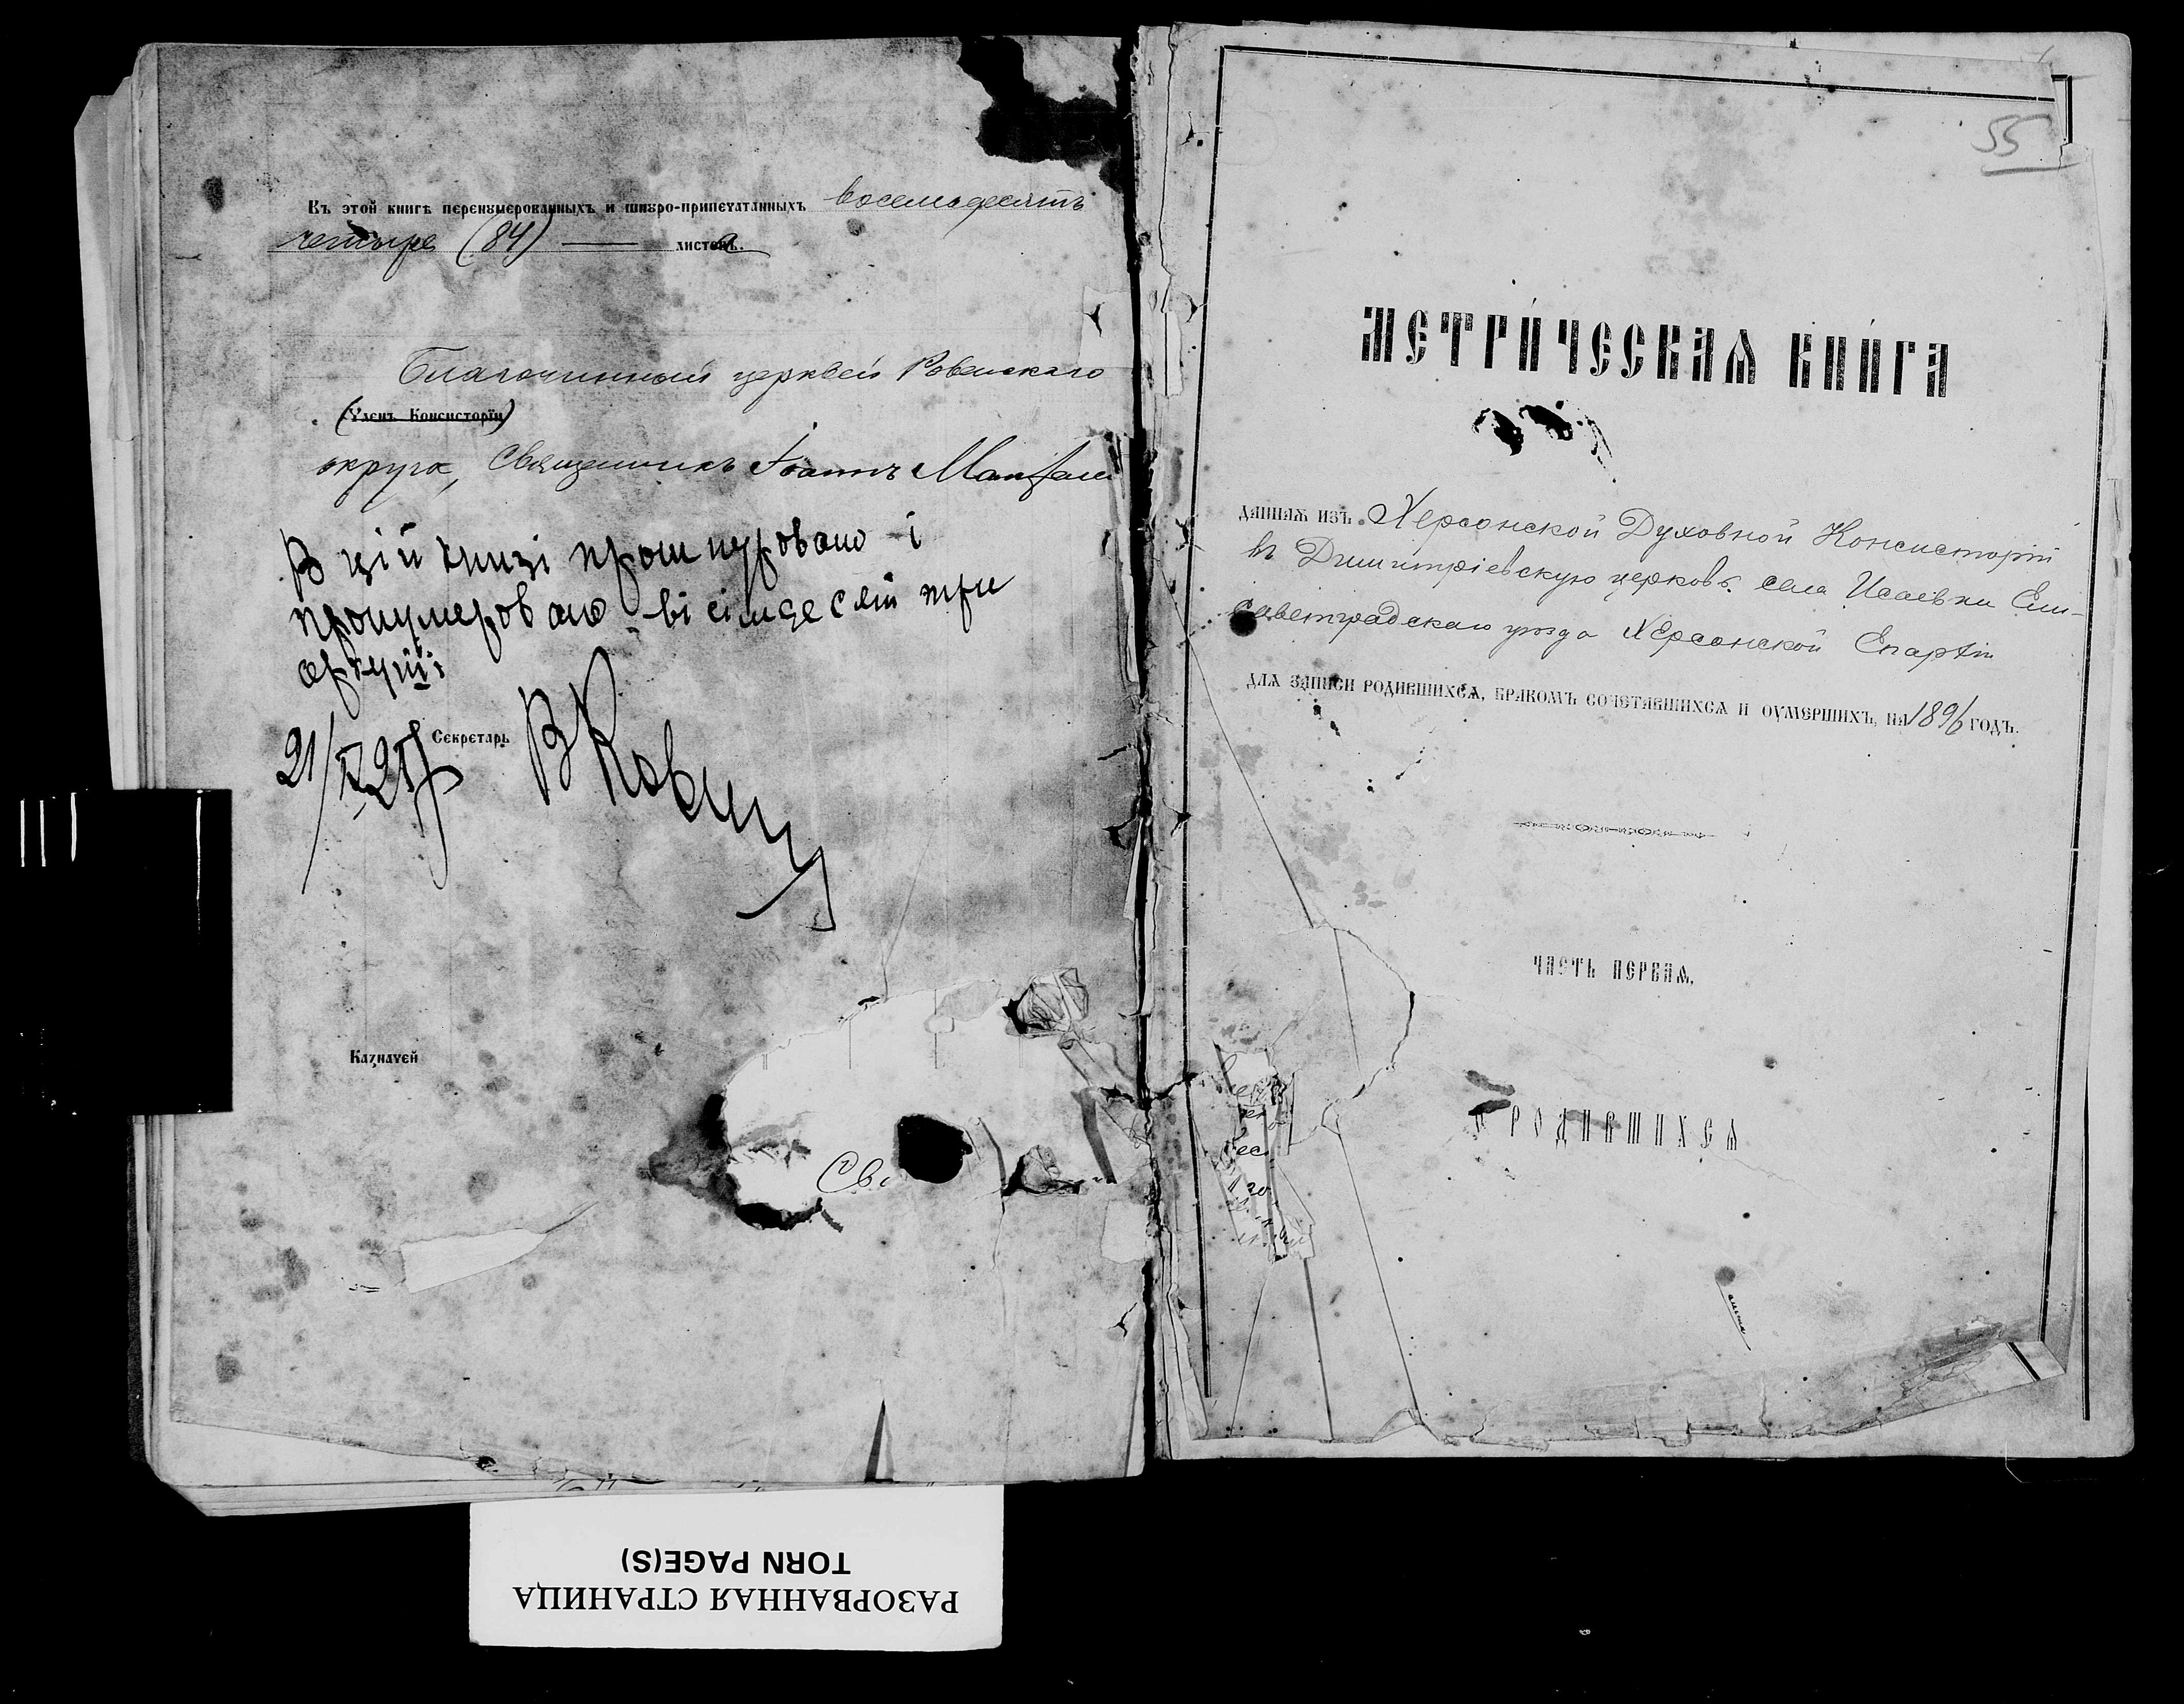 Въ этой книгѣ перенумерованныхъ и шнуро-припечатанныхъ восемьдесятъ
четыре (84) — листова.
Благочинный церквей Ровенскаго
(Членъ Консисторіи)
округа, Священникъ Іоаннъ
В цій книзі прошнуровано і
пронумеровано вісімдесят три
аркуші
21/
Секретарь
Казначей
Св
55
МЕТРИ́ЧЕСКАѦ КНИ́ГА
даннаѧ изъ Херсонской Духовной Консисторіи
въ Димитріевскую церковь села Исаевки Ели-
саветградскаго уѣзда Херсонской Епархіи
для записи родившихсѧ, бракомъ сочетавшихсѧ и оумершихъ, на 1896 годъ.
ЧАСТЬ ПЕРВАѦ,
О РОДИВШИХСѦ
РАЗОРВАННАЯ СТРАНИЦА
TORN PAGE(S)